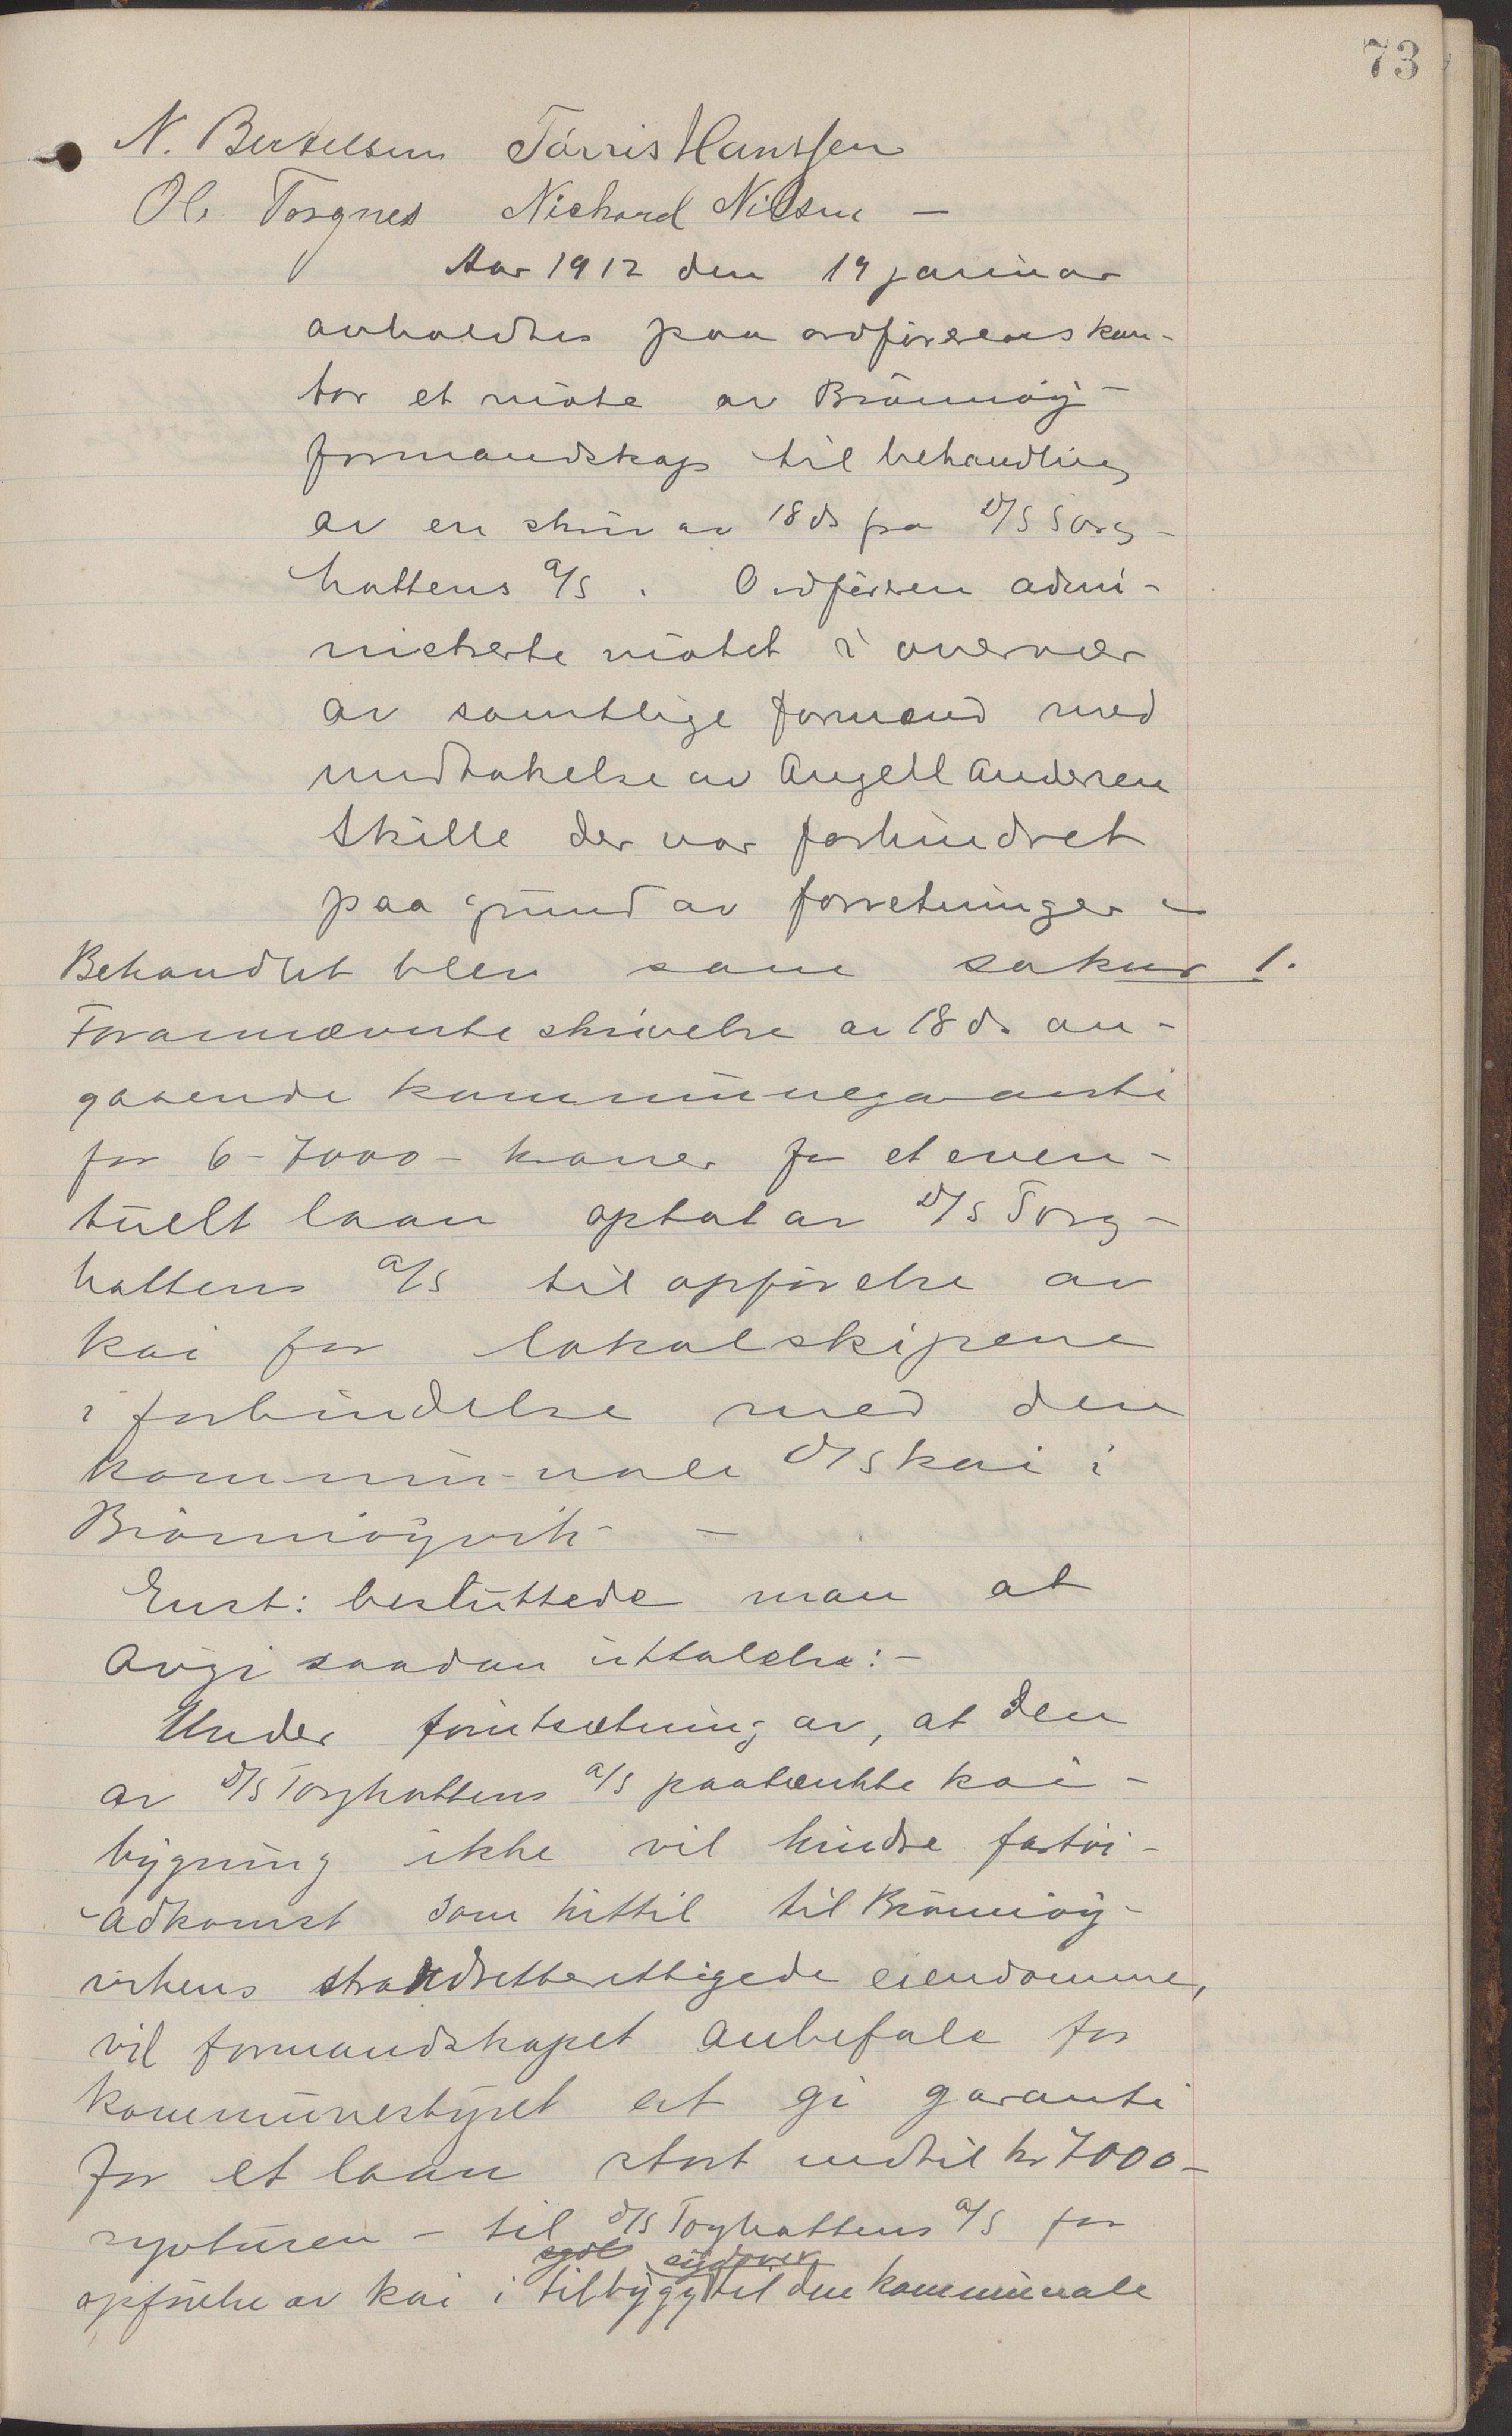 73
N. Bertelsen Tørris Hanssen
Ol. Torgnes Richard Nilsen —
Aar 1912 den 19 januar
avholdtes paa ordførerens kon-
tor et møte av Brønnøy
formandskap til behandling
av en skriv av 18 ds fra D/S Torg-
hattens A/S. Ordføreren admi-
nistrerte møtet i overvær
av samtlige formænd med
undtakelse av Angell Andersen
Skille der var forhindret
paa grund av forretninger –
Behandlet blev som sak nr 1.
Forannævnte skrivelse av 18 ds. an-
gaaende kommunegaranti
for 6-7000- kroner for et even-
tuelt laan optat av D/S Torg-
hattens A/S til opførelse av
kai for lokalskipene
i forbindelse med den
kommunale D/S kai i
Brønnøyvik. —
Enst: besluttede man at
avgi saadan uttalelse:-
Under forutsætning av, at den
av D/S Torghattens A/S paatænkte kai-
bygning ikke vil hindre fartøi-
adkomst som hittil til Brønnøy-
vikens strandretberettigede eiendomme,
vil formandskapet anbefale for
kommunestyret at gi garanti
for et laan stort indtil kr 7000-
syvtusen - til D/S Torghattens A/S for
opførelse av kai i tilbygg til den kommunale